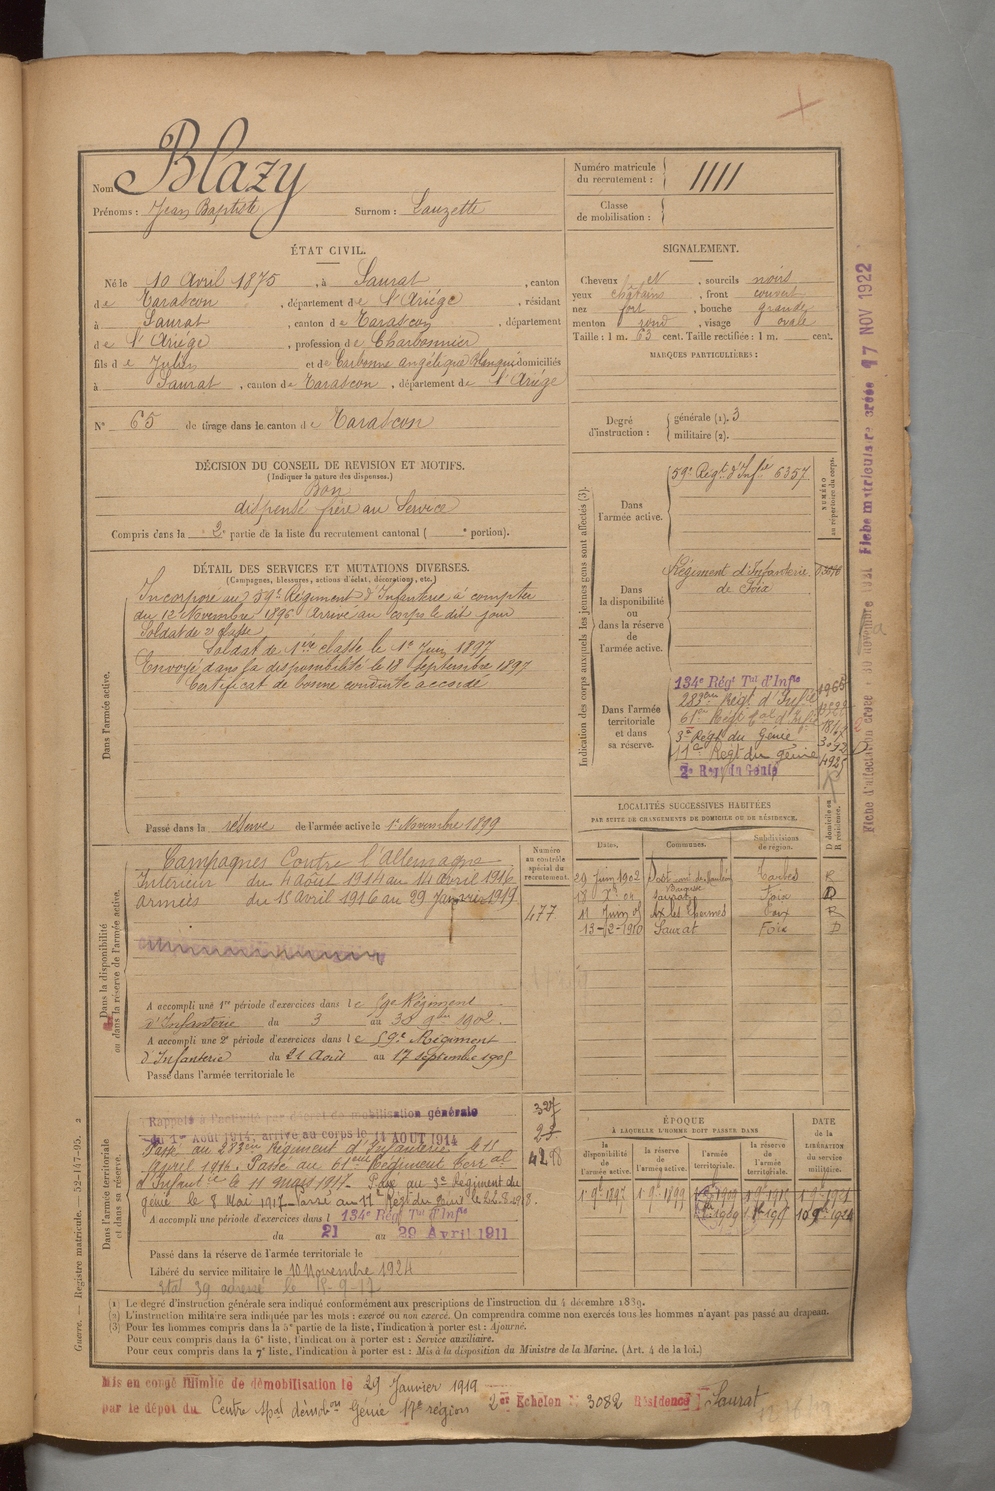 Nom: Blazy
Prénoms : Jean Baptiste Surnom : Lauzette
Numéro matricule du recrutement : 1111
Classe de mobilisation :
ÉTAT CIVIL.
Né le 10 Avril 1875, à Saurat, canton
de Tarascon, département de l'Ariége, résidant
à Saurat, canton de Tarascon, département
de l'Ariége, profession de Charbonnier
fils de Julien et de Carbonne Angélique domiciliés
à Saurat, canton de Tarascon, département de l'Ariége
N° 65 de tirage dans le canton de Tarascon
SIGNALEMENT.
Cheveux et, sourcils noirs
yeux châtains, front couvert
nez fort, bouche grande
menton rond, visage ovale
Taille : 1 m. 63 cent. Taille rectifiée : 1 m. cent.
MARQUES PARTICULIÈRES :
Degré d'instruction : générale (1). 3
militaire (2).
DÉCISION DU CONSEIL DE REVISION ET MOTIFS.
(Indiquer la nature des dispenses.)
Bon
dispensé frère au Service
Compris dans la 2e partie de la liste du recrutement cantonal ( e portion).
DÉTAIL DES SERVICES ET MUTATIONS DIVERSES.
(Campagnes, blessures, actions d'éclat, décorations, etc.)
Dans l'armée active.
Incorporé au 59e Régiment d'Infanterie à compter
du 12 Novembre 1896 Arrivé au corps le dit jour
Soldat de 2e classe
Soldat de 1ère classe le 1er Juin 1897
Envoyé dans la disponibilité le 18 Septembre 1897
Certificat de bonne conduite accordé
Passé dans la réserve de l'armée active le 1er Novembre 1899
Indication des corps auxquels les jeunes gens sont affectés (3).
NUMÉRO au répertoire du corps.
Dans l'armée active.
59e Régt d'Infie 6357
Dans la disponibilité ou dans la réserve de l'armée active.
Régiment d'Infanterie
de Foix
Dans l'armée territoriale et dans sa réserve.
134e Régt Tal d'Infie
283eme Régt d'Infie
61eme Régt Tal d'Infie
3e Régt du Génie
11e Régt du génie
2e Régt du Génie
LOCALITÉS SUCCESSIVES HABITÉES
PAR SUITE DE CHANGEMENTS DE DOMICILE OU DE RÉSIDENCE.
D domicile ou R résidence.
Dates. Communes. Subdivisions de région.
29 Juin 1902 Tarbes R
Saurat Foix D
11 Juin 05 Ax les Thermes Foix R
13-2-1910 Saurat Foix D
Dans la disponibilité ou dans la réserve de l'armée active.
Numéro au contrôle spécial du recrutement.
Campagnes Contre l'Allemagne
Intérieur du 4 Août 1914 au 14 Avril 1916
armées du 15 Avril 1916 au 29 Janvier 1919
477
A accompli une 1re période d'exercices dans le 59e Régiment
d'Infanterie du 3 au 30 9bre 1902.
A accompli une 2e période d'exercices dans le 59e Régiment
d'Infanterie du 21 Août au 17 septembre 1905
Passé dans l'armée territoriale le
Dans l'armée territoriale et dans sa réserve.
Rappelé à l'activité par décret de mobilisation générale
du 1er Août 1914, arrivé au corps le 11 AOUT 1914
Passé au 283eme Régiment d'Infanterie le 15
Avril 1916. Passé au 61eme Régiment Terral
d'Infantie le 11 mars 1917. Passé au 3e Régiment du
génie le 8 Mai 1917. Passé au 11e Régt du Génie le 22.8.1918
A accompli une période d'exercices dans l 134e Régt Tal d'Infie
du 21 au 29 Avril 1911
Passé dans la réserve de l'armée territoriale le
Libéré du service militaire le 10 Novembre 1924
327
4298
ÉPOQUE
À LAQUELLE L'HOMME DOIT PASSER DANS
la disponibilité de l'armée active.
la réserve de l'armée active.
l'armée territoriale.
la réserve de l'armée territoriale.
DATE de la LIBÉRATION du service militaire.
(1) Le degré d'instruction générale sera indiqué conformément aux prescriptions de l'instruction du 4 décembre 1889.
(2) L'instruction militaire sera indiquée par les mots : exercé ou non exercé. On comprendra comme non exercés tous les hommes n'ayant pas passé au drapeau.
(3) Pour les hommes compris dans la 5e partie de la liste, l'indication à porter est : Ajourné.
Pour ceux compris dans la 6e liste, l'indication à porter est : Service auxiliaire.
Pour ceux compris dans la 7e liste, l'indication à porter est : Mis à la disposition du Ministre de la Marine. (Art. 4 de la loi.)
Guerre. — Registre matricule. — 52-147-95. 2
Mis en congé illimité de démobilisation le 29 Janvier 1919
par le dépôt du Centre spal démobon Génie 17e région 2er Echelon N° 3082 Résidence Saurat
Fiche matriculaire créée 17 NOV 1922